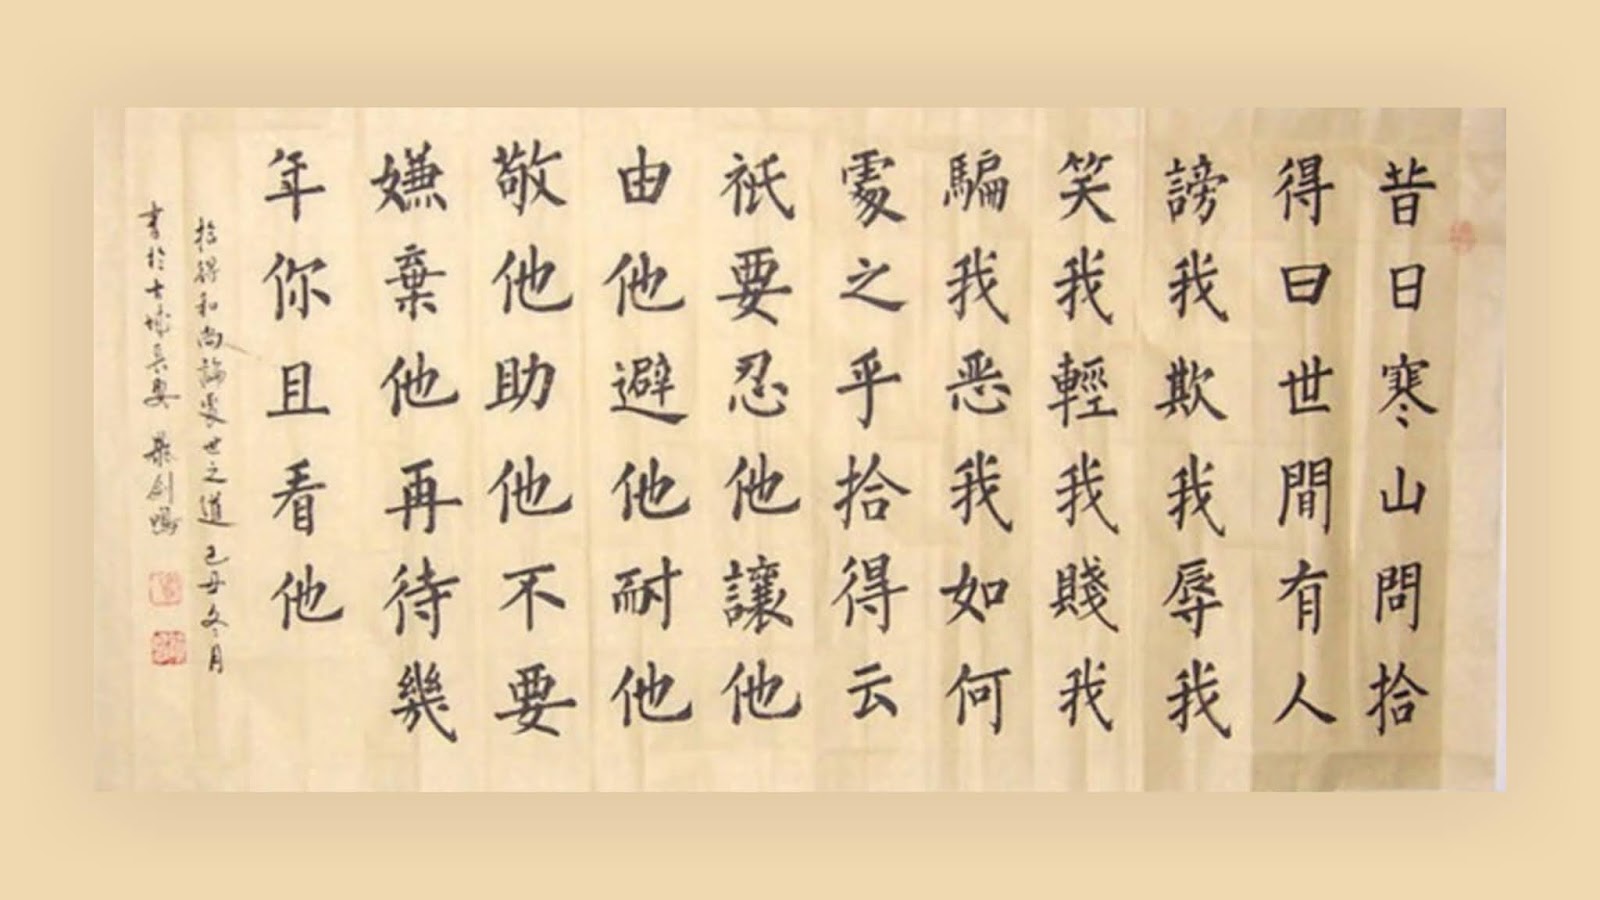 昔日寒山問拾
得曰世間有人
謗我欺我辱我
笑我輕我賤我
騙我恶我如何
處之乎拾得云
祇要忍他讓他
由他避他耐他
敬他助他不要
嫌棄他再待幾
年你且看他
拾得和尚論處世之道 己丑冬月
書於古城長安